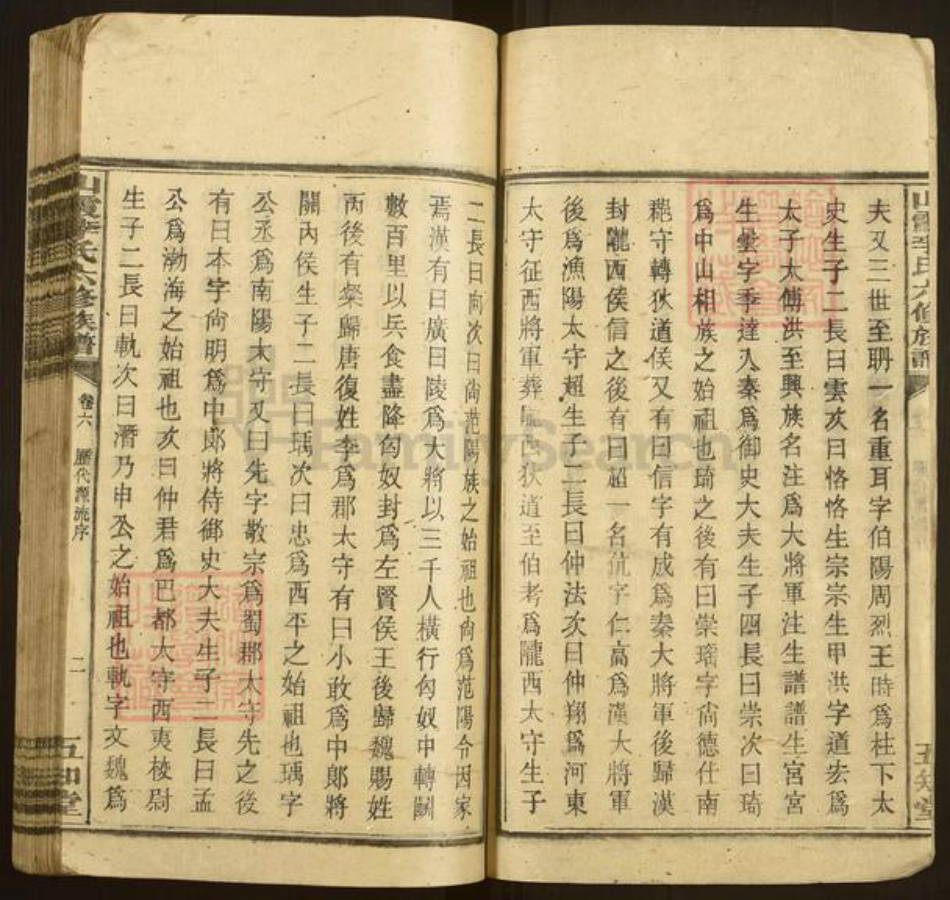 夫又三世至聃一名重耳字伯陽周烈王時爲柱下太
史生子二長曰雲次曰恪恪生宗宗生甲洪字道宏爲
太子太傅洪至興族名注爲大將軍注生譜譜生宮宮
生曇字季達入秦爲御史大夫生子四長曰崇次曰琦
爲中山相族之始祖也琦之後有曰崇瑤字尙德仕南
鄭守轉狄道侯又有曰信字有成爲秦大將軍後歸漢
封隴西侯信之後有曰超一名伉字仁高爲漢大將軍
後爲漁陽太守超生子二長曰仲法次曰仲翔爲河東
太守征西將軍葬隴西狄道至伯考爲隴西太守生子
二長曰向次曰尙范陽族之始祖也尙爲范陽令因家
焉漢有曰廣曰陵爲大將以三千人橫行匈奴中轉鬭
數百里以兵食盡降匈奴封爲左賢侯王後歸魏賜姓
丙後有粲歸唐復姓李爲郡太守有曰小敢爲中郎將
關內侯生子二長曰瑀次曰忠爲西平之始祖也瑀字
公丞爲南陽太守又曰先字敬宗爲蜀郡太守先之後
有曰本字尙明爲中郎將侍御史大夫生子二長曰孟
公爲渤海之始祖也次曰仲君爲巴都太守西夷棱尉
生子二長曰軌次曰潛乃申公之始祖也軌字文魏爲
山霞李氏六修族譜
卷六
歷代源流序
二
五知堂
山霞李氏六修族譜
五知堂
FamilySearch